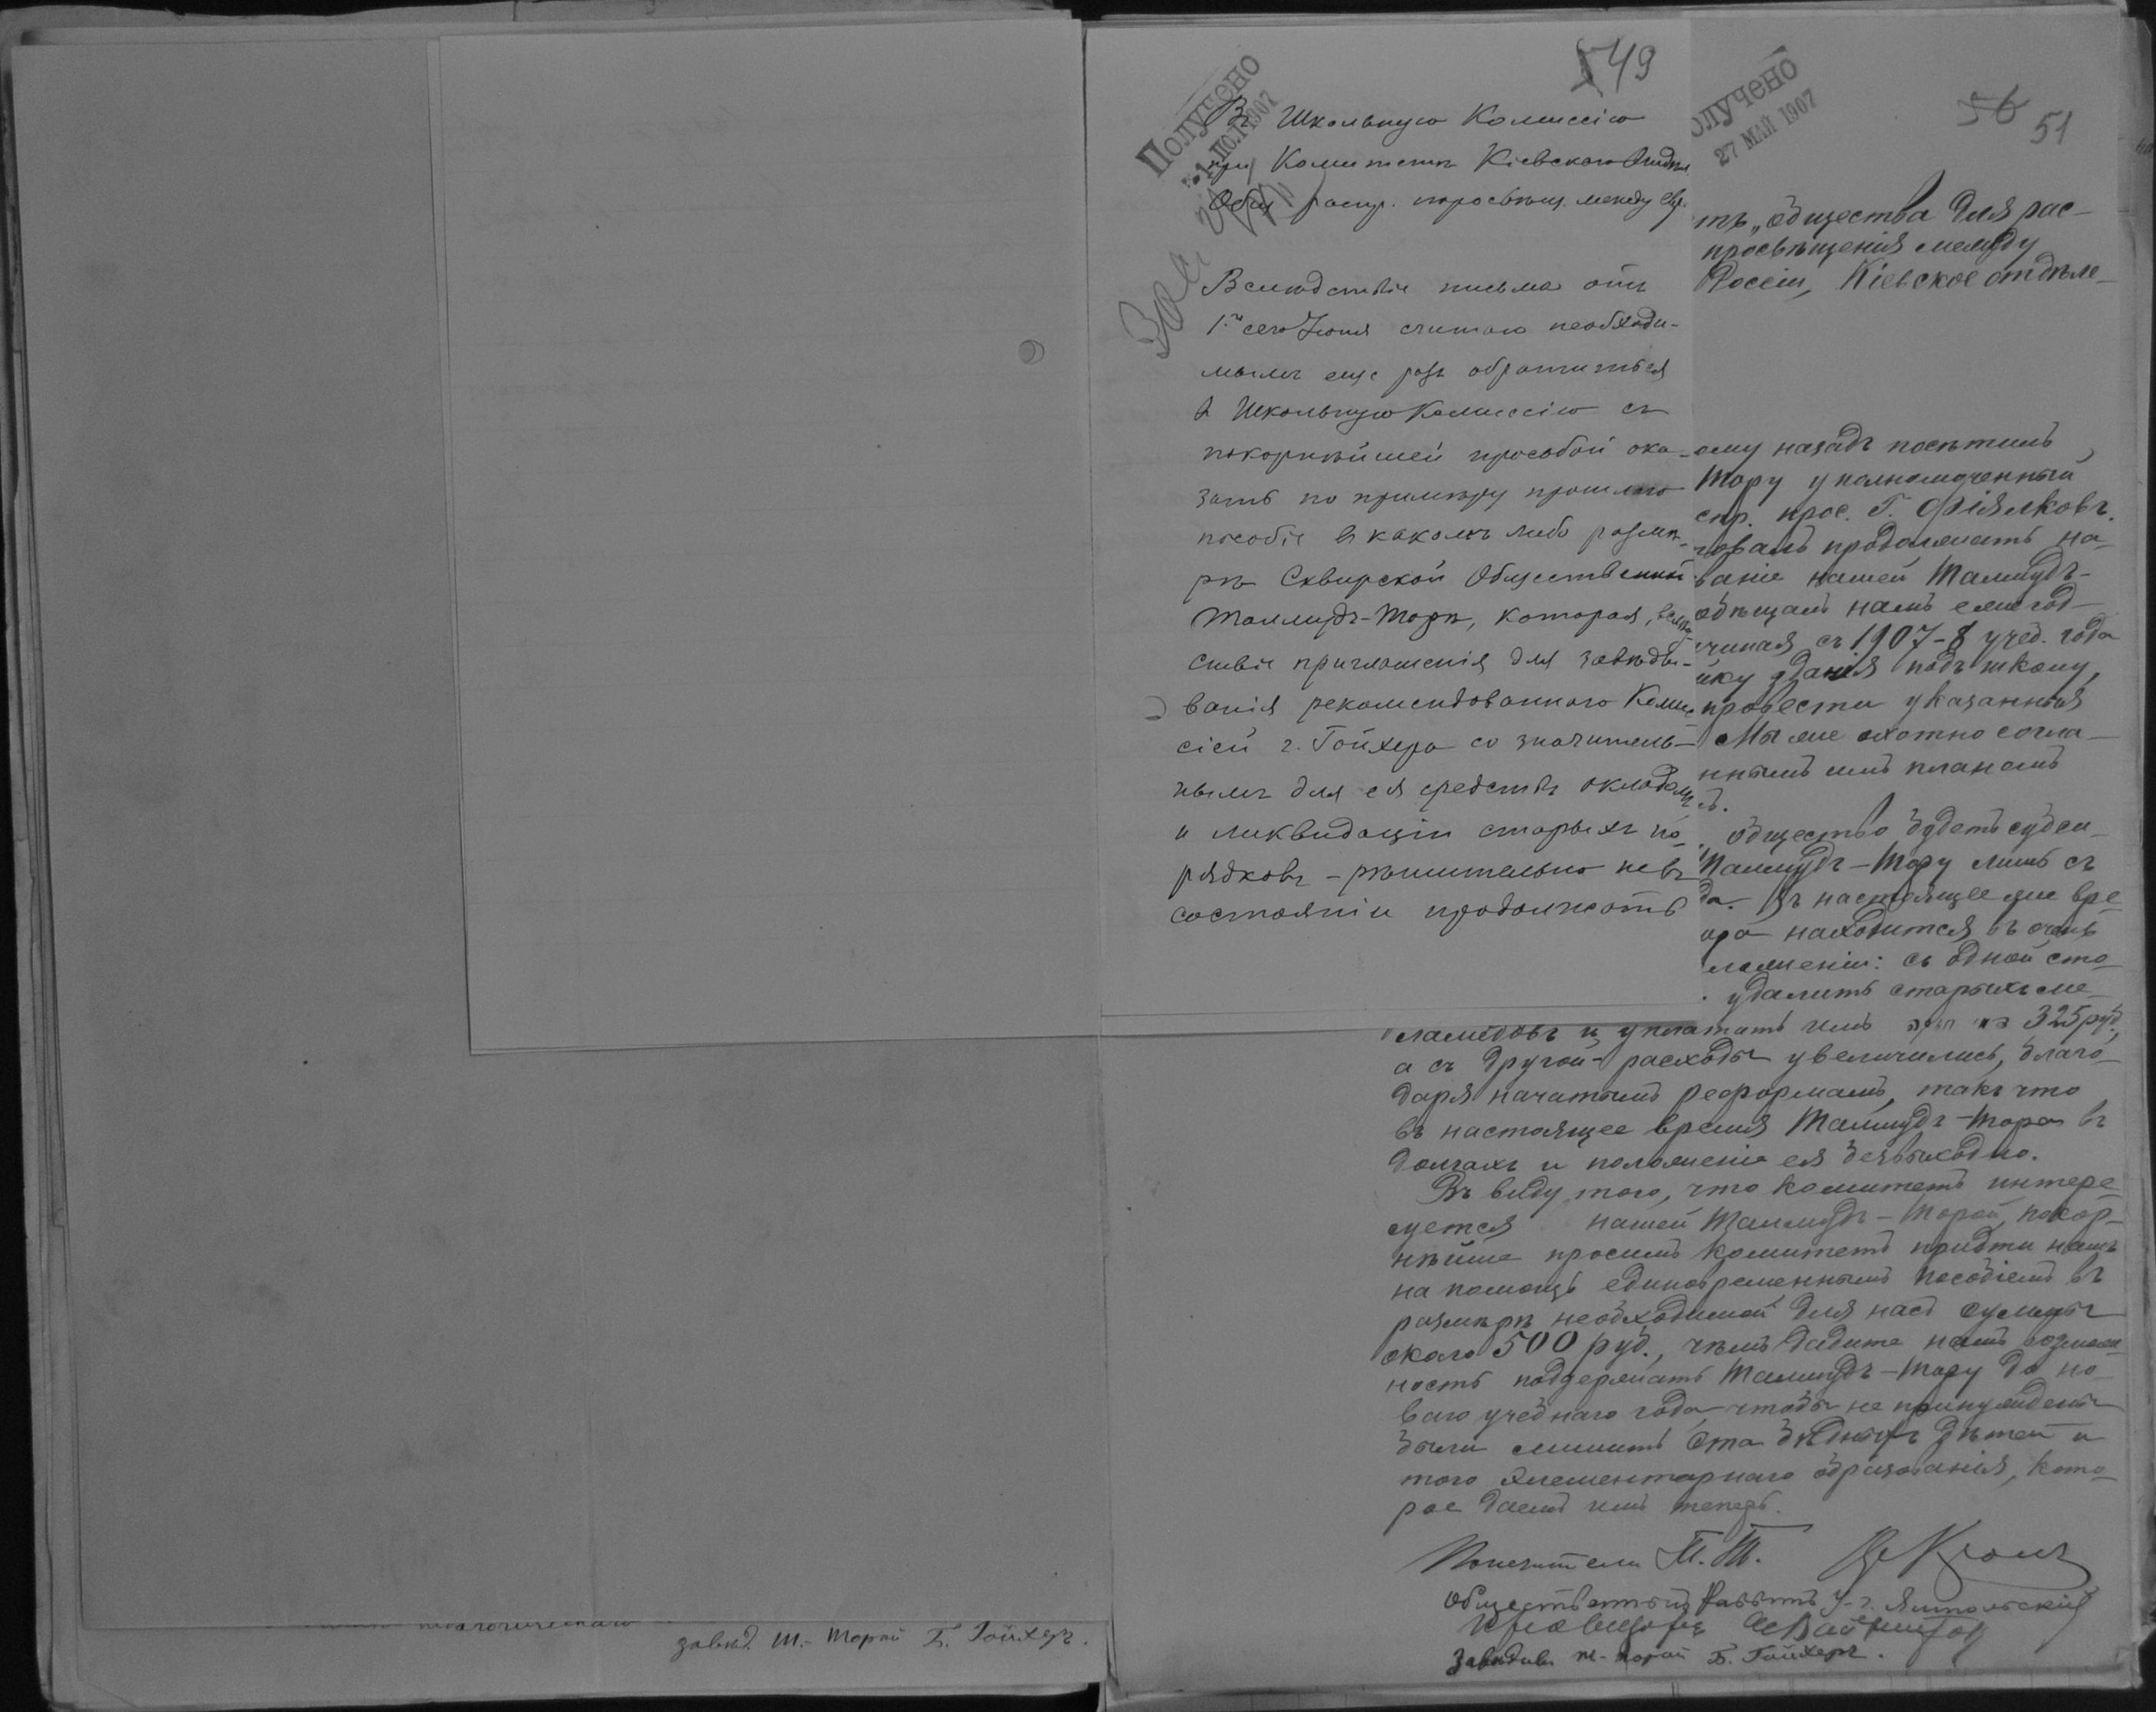 49
Получено
1907
Въ Школьную Комиссію
при Комитетѣ Кіевскаго Отдѣл.
Общ. распр. просвѣщ. между Евр.
Вслѣдствіе письма отъ
1го сего Іюня считаю необходи-
мымъ еще разъ обратиться
въ Школьную Комиссію съ
покорнѣйшей просьбой ока-
зать по примѣру прошлаго
пособіе въ какомъ либо размѣ-
рѣ Сквирской Общественной
Талмудъ-Торѣ, которая, вслѣд-
ствіе приглашенія для завѣды-
ванія рекомендованнаго Комис-
сіей г. Гойхера со значитель-
нымъ для ея средствъ окладомъ
и ликвидаціи старыхъ по-
рядковъ – рѣшительно не въ
состояніи продолжать
олучено
27 МАЙ 1907
56
51
тъ „Общества для рас-
просвѣщенія между
Россіи, Кіевское отдѣле-
ому назадъ посѣтилъ
Тору уполномоченный
спр. прос. Г. Фіялковъ.
товалъ продолжать на-
ваніе нашей Талмудъ-
обѣщалъ намъ ежегод-
чиная съ 1907-8 учеб. года
йку зданія подъ школу,
провести указанныя
Мы же охотно согла-
ннымъ имъ планомъ
ъ.
Общество будетъ субси-
Талмудъ-Тору лишь съ
да. Въ настоящее же вре-
ора находится въ очень
ложеніи: съ одной сто-
удалить старыхъ ме-
ламедовъ и уплатить имъ 325 руб.,
а съ другой – расходы увеличились, благо-
даря начатымъ реформамъ, такъ что
въ настоящее время Талмудъ-Тора въ
долгахъ и положеніе ея безвыходно.
Въ виду того, что комитетъ интере-
суется нашей Талмудъ-Торой, покор-
нѣйше просимъ комитетъ придти намъ
на помощь единовременнымъ пособіемъ въ
размѣрѣ необходимой для насъ суммы
около 500 руб., чѣмъ дадите намъ возмож-
ность поддержать Талмудъ-Тору до но-
ваго учебнаго года, чтобы не принуждены
были лишить ста бѣдныхъ дѣтей и
того элементарнаго образованія, кото-
рое даемъ имъ теперь.
Попечители Т.Т.
Общественный Раввинъ
Завѣдыв. Т-Торой Б. Гойхеръ.
педагогическаго
завѣд. Т.-Торой Б. Гойхеръ.